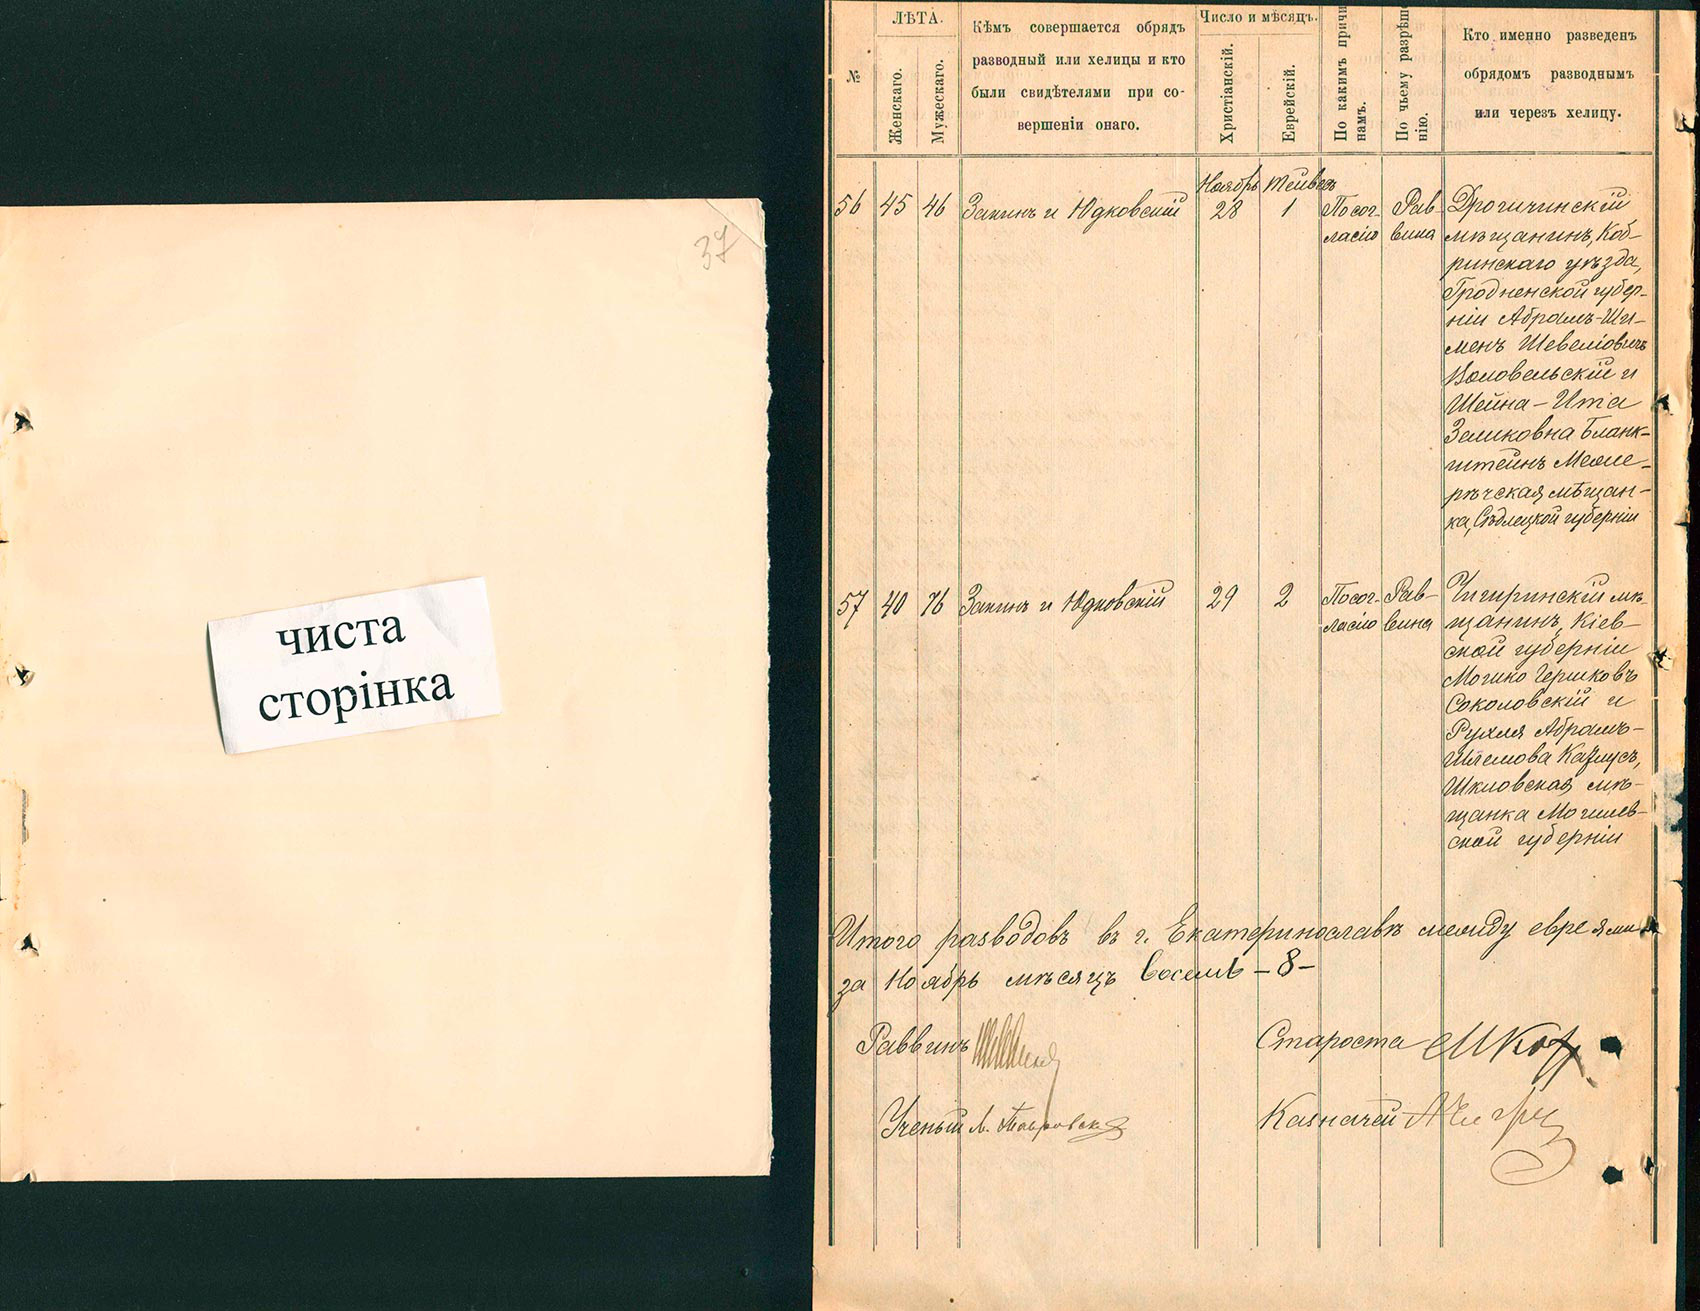 37
чиста
сторінка
№
ЛѢТА.
Женскаго.
Мужескаго.
Кѣмъ совершается обрядъ
разводный или хелицы и кто
были свидѣтелями при со-
вершеніи онаго.
Число и мѣсяцъ.
Христіанскій.
Еврейскій.
По какимъ причи
намъ.
По чьему разрѣше
нію.
Кто именно разведенъ
обрядомъ разводнымъ
или черезъ хелицу.
Ноябрь Тейвесъ
56 45 46 Закинъ и Юдковскій 28 1
Посог-
ласію
Рав-
вина
Дрогичинскій
мѣщанинъ, Коб-
ринскаго уѣзда,
Гродненской губер-
ніи Абрамъ-Ши-
менъ Шевеліовичъ
Воловельскій и
Шейна-Ита
Зеликовна Бланк-
штейнъ Межи-
рѣчская мѣщан-
ка, Сѣдлецкой губерніи
57 40 76 Закинъ и Юдковскій 29 2
Посог-
ласію
Рав-
вина
Чигиринскій мѣ-
щанинъ, Кіев-
ской губерніи
Мошко Гершковъ
Соколовскій и
Рухля Абрамъ-
Шлемова
Шкловская мѣ-
щанка Могилев-
ской губерніи
Итого разводовъ въ г. Екатеринославѣ между евреями
за Ноябрь мѣсяцъ восемь -8-
Раввинъ
Староста
Ученый
Казначей